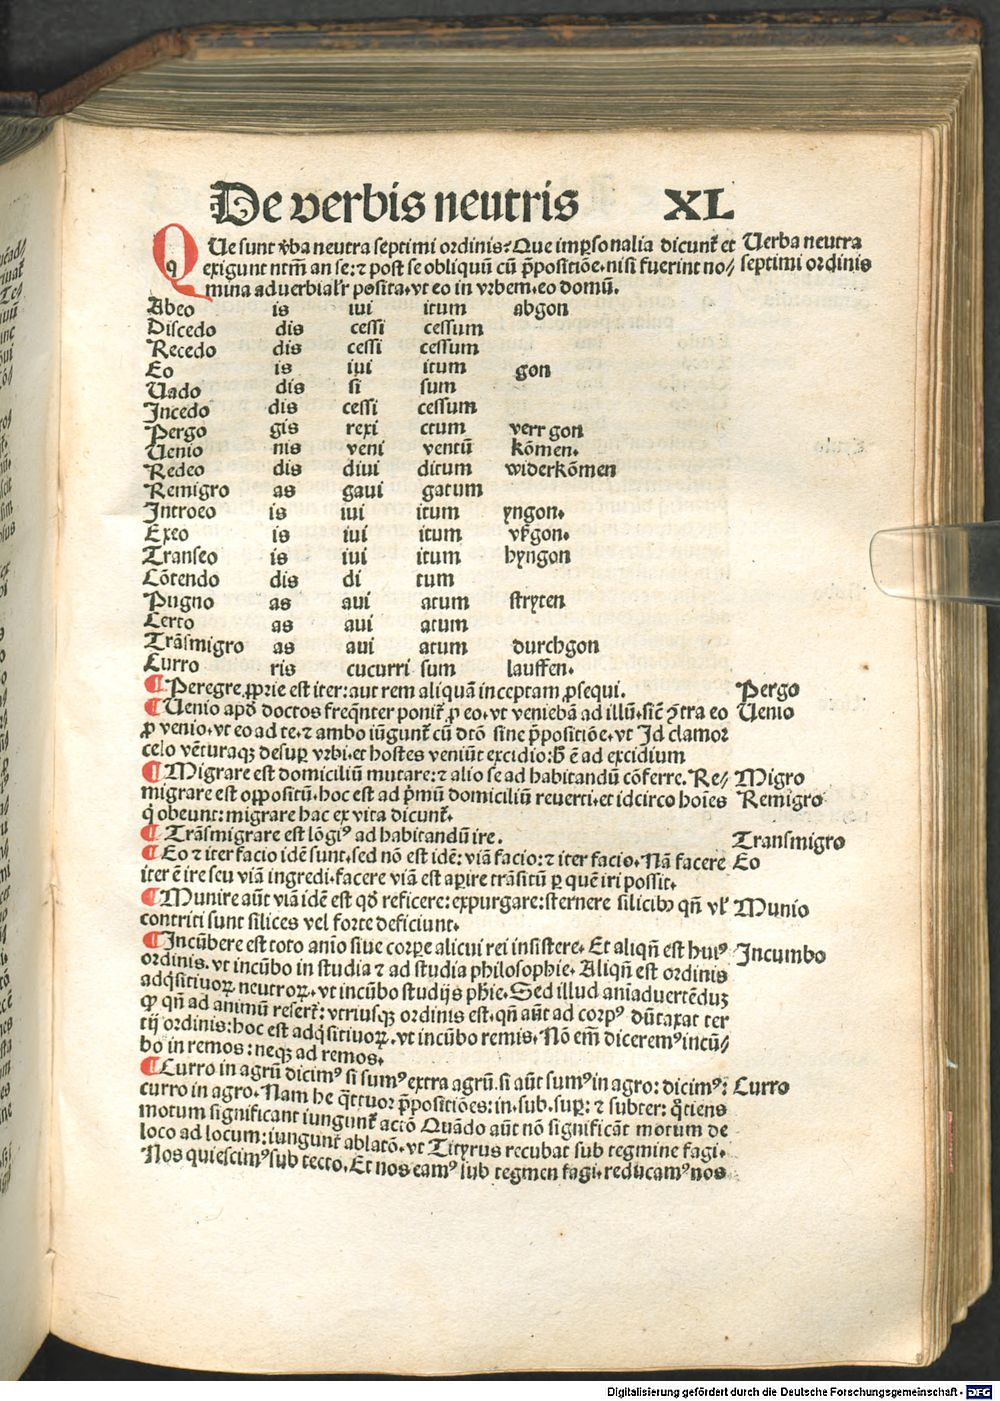 De verbis neutris XL
QUe sunt v̓ba neutra septimi ordinis? Que imꝑsonalia dicunt̉ et Uerba neutra
exigunt ntm̄ an se: ⁊ post se obliquū cū p̄positiōe. nisi fuerint no/ septimi ordinis
mina aduerbial'r posita. vt eo in vrbem. eo domū.
Abeo is iui itum abgon
Discedo dis cessi cessum
Recedo dis cessi cessum
Eo is iui itum gon
Uado dis si sum
Incedo dis cessi cessum
Pergo gis rexi ctum verr gon
Uenio nis veni ventū kōmen.
Redeo dis diui ditum widerkōmen
Remigro as gaui gatum
Introeo is iui itum yngon.
Exeo is iui itum vßgon.
Transeo is iui itum hyngon
Cōtendo dis di tum
Pugno as aui atum stryten
Certo as aui atum
Trāsmigro as aui atum durchgon
Curro ris cucurri sum lauffen.
¶ Peregre ꝓprie est iter: aut rem aliquā inceptam ꝓsequi. Pergo
¶ Uenio apd̓ doctos freq̄nter ponit̉ ꝓ eo. vt veniebā ad illū. sic̄ ꝯtra eo Uenio
ꝓ venio. vt eo ad te. ⁊ ambo iūgunt̉ cū dtō sine p̄positiōe. vt Id clamor
celo vēturaqꝫ desuꝑ vrbi. et hostes veniūt excidio: h̓ ē ad excidium
¶ Migrare est domiciliū mutare: ⁊ alio se ad habitandū cōferre. Re/ Migro
migrare est oꝓpositū. hoc est ad p̓mū domiciliū reuerti. et idcirco hoīes Remigro
q̓ obeunt: migrare hac ex vita dicunt̉.
¶ Trāsmigrare est lōgiꝰ ad habitandū ire. Transmigro
¶ Eo ⁊ iter facio idē sunt. sed nō est idē: viā facio: ⁊ iter facio. Nā facere Eo
iter ē ire seu viā ingredi. facere viā est aꝑire trāsitū ꝑ quē iri possit.
¶ Munire aūt viā idē est qd̓ reficere: expurgare: sternere silicibꝫ qn̄ vl̓ Munio
contriti sunt silices vel forte deficiunt.
¶ Incūbere est toto anīo siue corꝑe alicui rei insistere. Et aliqn̄ est huiꝰ Incumbo
ordinis. vt incūbo in studia ⁊ ad studia philosophie. Aliqn̄ est ordinis
adq̓sitiuoꝝ neutroꝝ. vt incūbo studijs phie. Sed illud aniaduertēduꝫ
ꝙ qn̄ ad animū refert̉: vtriusqꝫ ordinis est. qn̄ aūt ad corpꝰ dūtaxat ter
tij ordinis: hoc est adq̓sitiuoꝝ. vt incūbo remis. Nō em̄ diceremꝰ incū/
bo in remos: neqꝫ ad remos.
¶ Curro in agrū dicimꝰ si sumꝰ extra agrū. si aūt sumꝰ in agro: dicimꝰ: Curro
curro in agro. Nam he q̄ttuor p̄positiōes: in. sub. suꝑ: ⁊ subter: q̄tiens
motum significant iungunt̉ actō Quādo aūt nō significāt motum de
loco ad locum: iungunt̉ ablatō. vt Tityrus recubat sub tegmine fagi.
Nos quiescimꝰ sub tecto. Et nos eamꝰ sub tegmen fagi. reducamꝰ nos
Digitalisierung gefördert durch die Deutsche Forschungsgemeinschaft - DFG